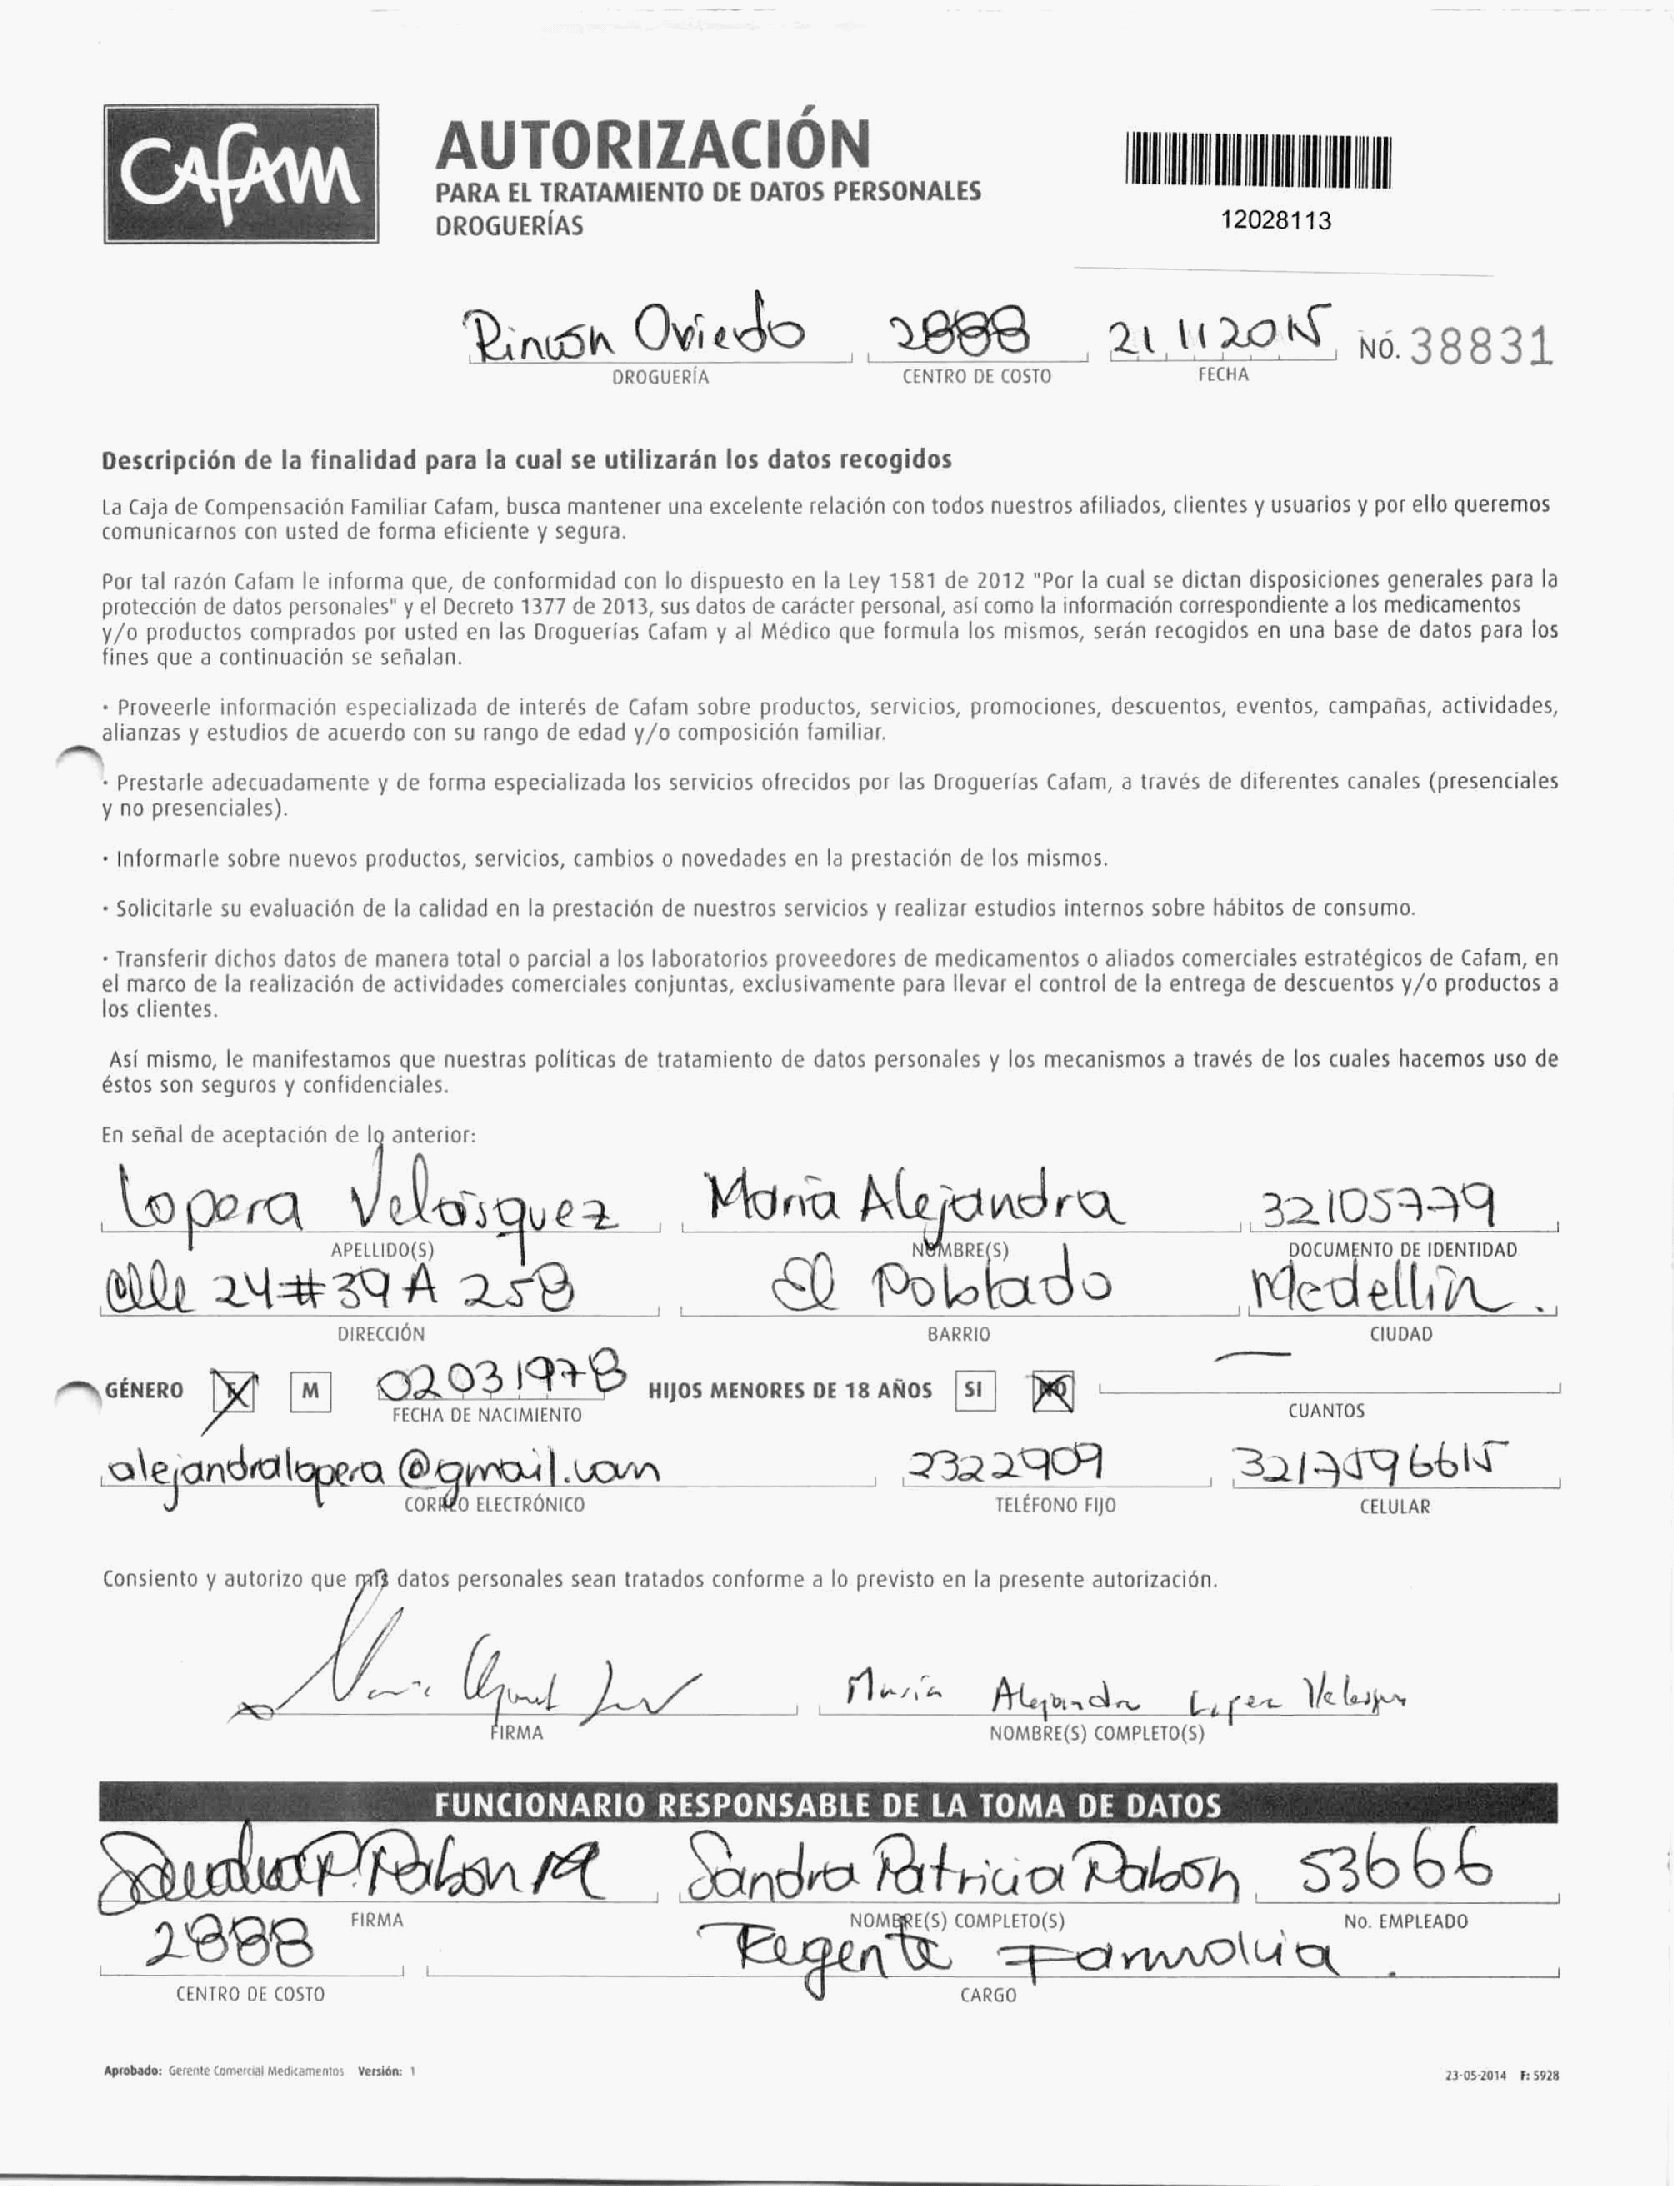 Cafam
AUTORIZACIÓN
PARA EL TRATAMIENTO DE DATOS PERSONALES
DROGUERÍAS
12028113
Rincón Oviedo 2888 21 11 2015 NÓ. 38831
DROGUERÍA CENTRO DE COSTO FECHA
Descripción de la finalidad para la cual se utilizarán los datos recogidos
La Caja de Compensación Familiar Cafam, busca mantener una excelente relación con todos nuestros afiliados, clientes y usuarios y por ello queremos
comunicarnos con usted de forma eficiente y segura.
Por tal razón Cafam le informa que, de conformidad con lo dispuesto en la Ley 1581 de 2012 "Por la cual se dictan disposiciones generales para la
protección de datos personales" y el Decreto 1377 de 2013, sus datos de carácter personal, así como la información correspondiente a los medicamentos
y/o productos comprados por usted en las Droguerías Cafam y al Médico que formula los mismos, serán recogidos en una base de datos para los
fines que a continuación se señalan.
· Proveerle información especializada de interés de Cafam sobre productos, servicios, promociones, descuentos, eventos, campañas, actividades,
alianzas y estudios de acuerdo con su rango de edad y/o composición familiar.
· Prestarle adecuadamente y de forma especializada los servicios ofrecidos por las Droguerías Cafam, a través de diferentes canales (presenciales
y no presenciales).
· Informarle sobre nuevos productos, servicios, cambios o novedades en la prestación de los mismos.
· Solicitarle su evaluación de la calidad en la prestación de nuestros servicios y realizar estudios internos sobre hábitos de consumo.
· Transferir dichos datos de manera total o parcial a los laboratorios proveedores de medicamentos o aliados comerciales estratégicos de Cafam, en
el marco de la realización de actividades comerciales conjuntas, exclusivamente para llevar el control de la entrega de descuentos y/o productos a
los clientes.
Así mismo, le manifestamos que nuestras políticas de tratamiento de datos personales y los mecanismos a través de los cuales hacemos uso de
éstos son seguros y confidenciales.
En señal de aceptación de lo anterior:
Lopera Velásquez María Alejandra 32105779
APELLIDO(S) NOMBRE(S) DOCUMENTO DE IDENTIDAD
Calle 24 # 39 A 258 El Poblado Medellín.
DIRECCIÓN BARRIO CIUDAD
GÉNERO F M 02031978 HIJOS MENORES DE 18 AÑOS SI NO —
FECHA DE NACIMIENTO CUANTOS
alejandralopera@gmail.com 2322909 3217596615
CORREO ELECTRÓNICO TELÉFONO FIJO CELULAR
Consiento y autorizo que mis datos personales sean tratados conforme a lo previsto en la presente autorización.
María Alejandra Lopera Velasquez
FIRMA NOMBRE(S) COMPLETO(S)
FUNCIONARIO RESPONSABLE DE LA TOMA DE DATOS
Sandra P. Pabon M Sandra Patricia Pabón 53666
FIRMA NOMBRE(S) COMPLETO(S) No. EMPLEADO
2888 Regente Farmacia.
CENTRO DE COSTO CARGO
Aprobado: Gerente Comercial Medicamentos Versión: 1 23-05-2014 F: 5928